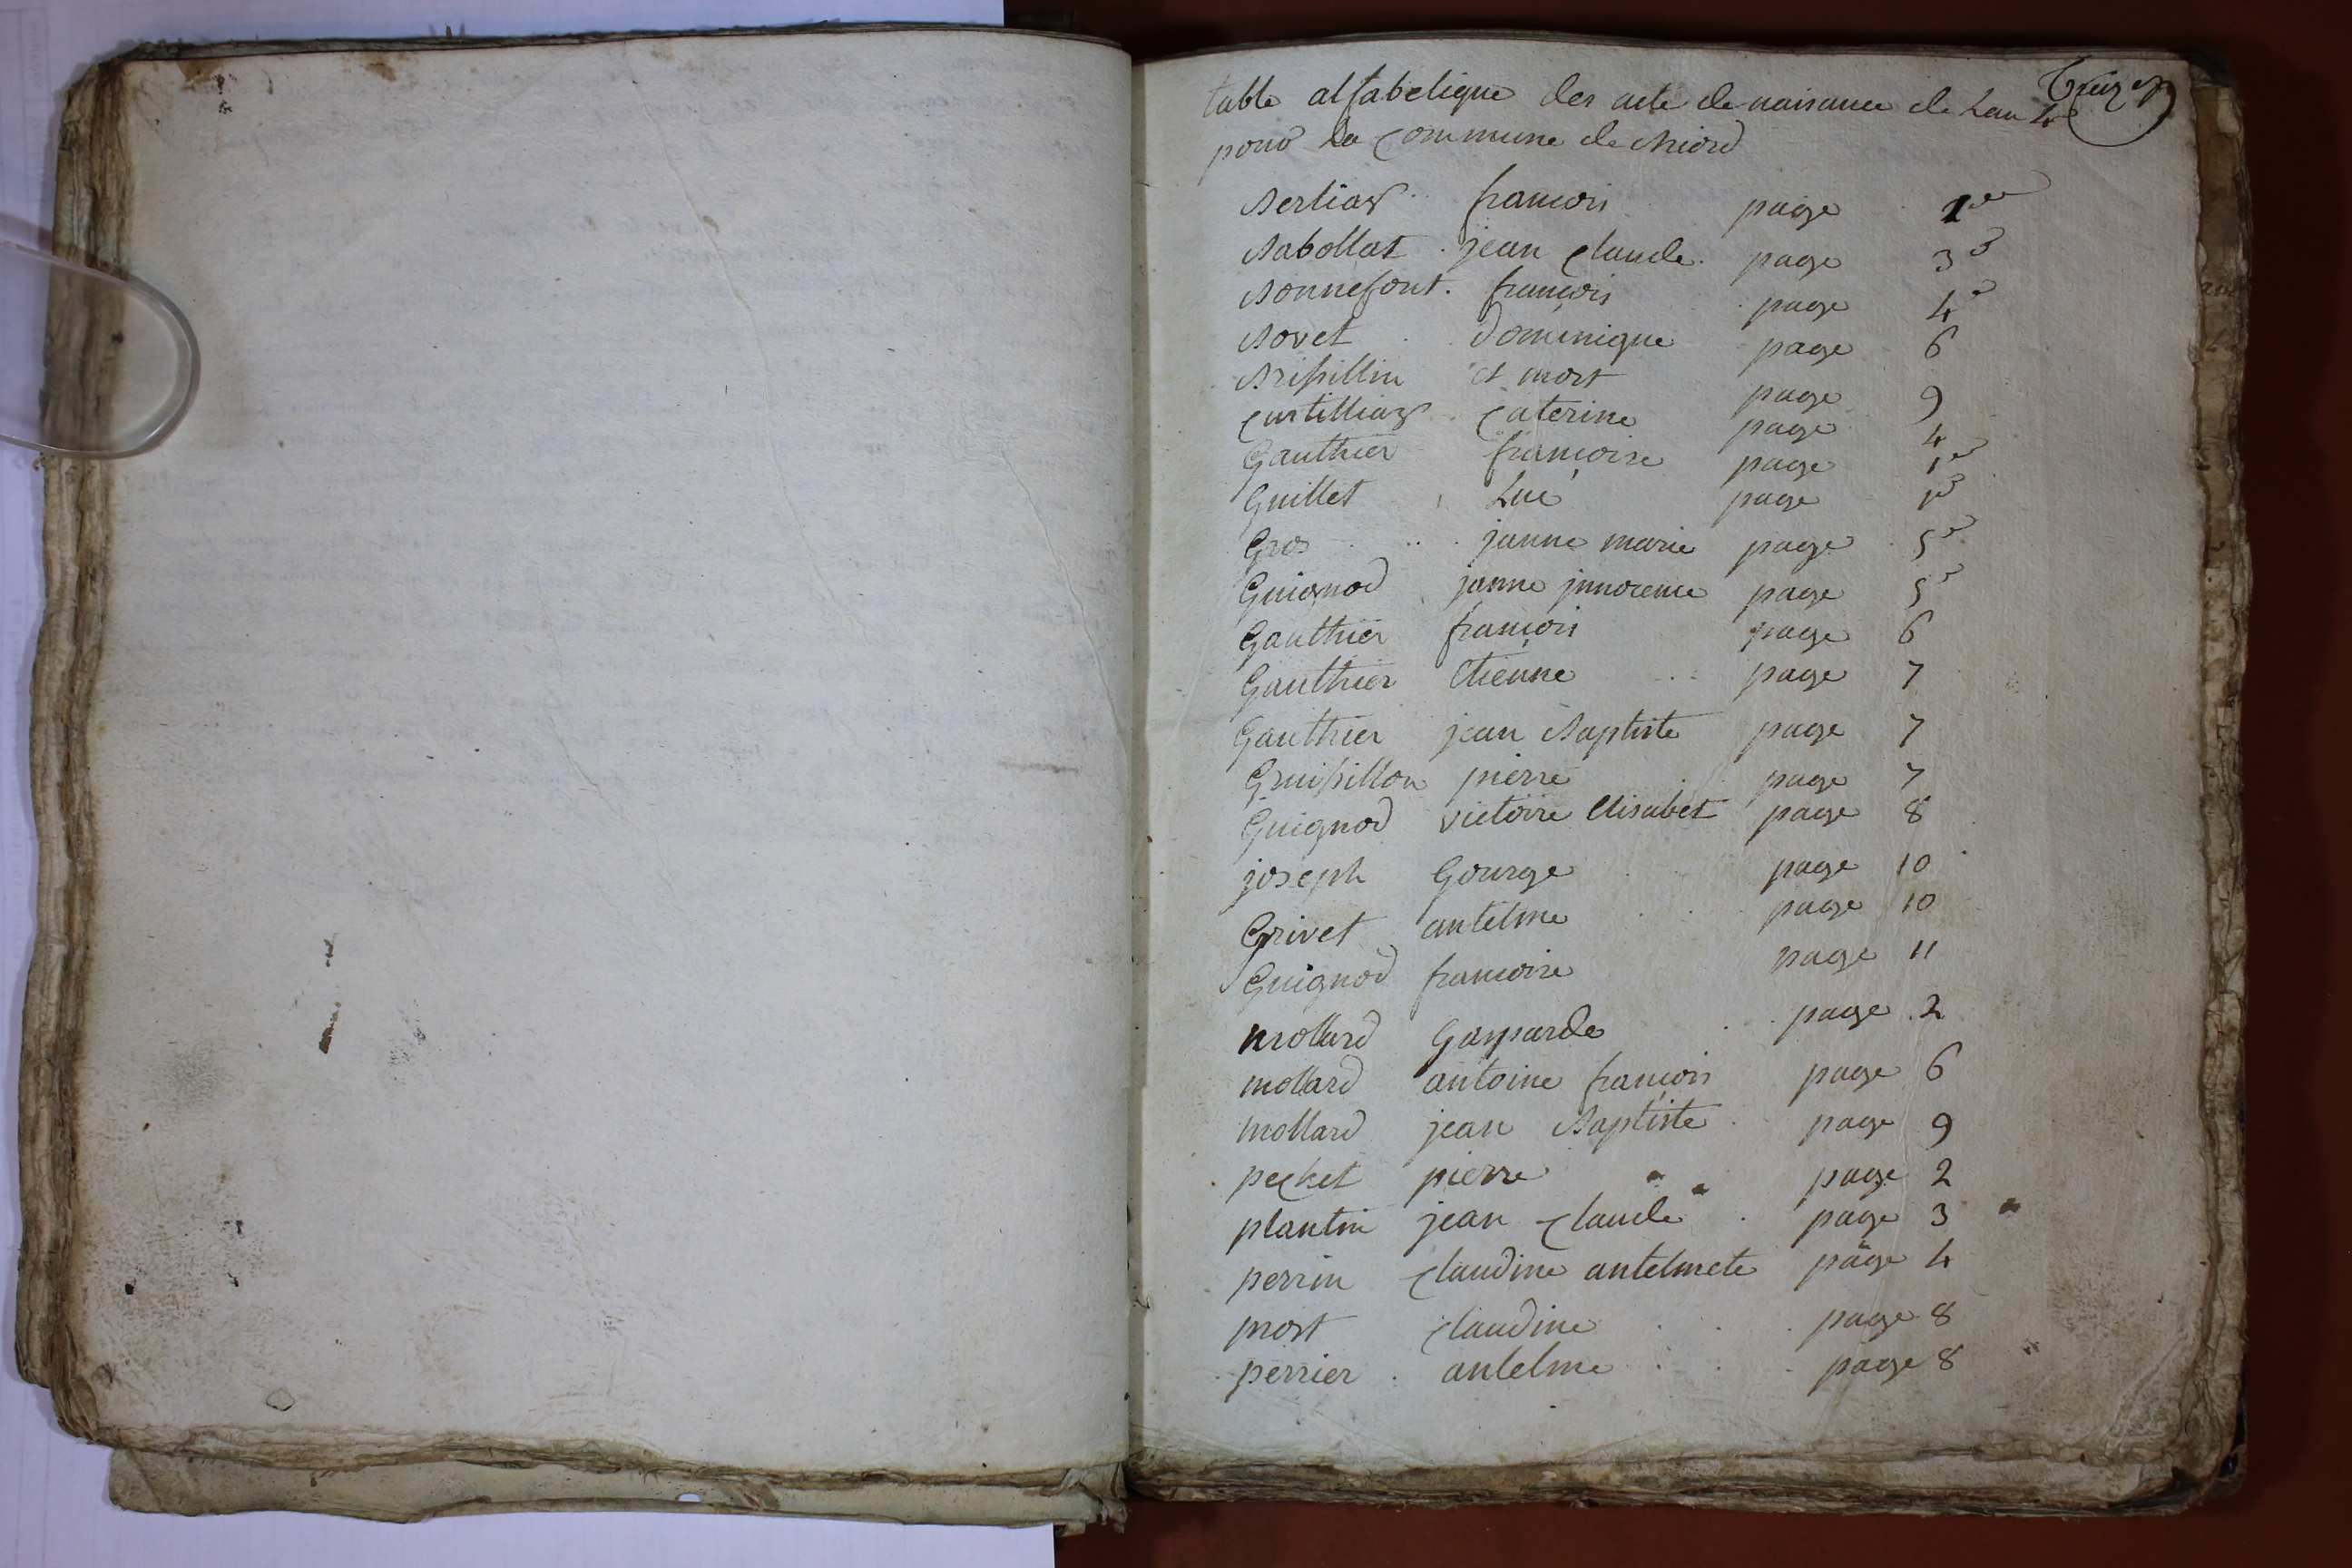 table alfabetique des acte de naisance de Lan 4e Treize
pour la Commune de Niord
Bertiaz francois page 1er
Babollat jean Claude page 3e
Bonnefont françois page 4e
Bovet dominique page 6
Brissillin et mort page 9
Curtilliaz Caterine page 4
Gauthier françoise page 1er
Guillet Luc page 1e
Gros janne marie page 5e
Guignod janne jnnocence page 5e
Gauthier françois page 6
Gauthier Etienne page 7
Gauthier jean Baptiste page 7
Gruissillon pierre page 7
Guignod victoire Elisabet page 8
joseph Gourge page 10
Grivet antelme page 10
Guignod francoise page 11
mollard Gasparde page 2
mollard antoine françois page 6
mollard jean Baptiste page 9
pecket pierre page 2
plantin jean Claude page 3
perrin Claudine antelmete page 4
prost Claudine page 8
perrier antelme page 8